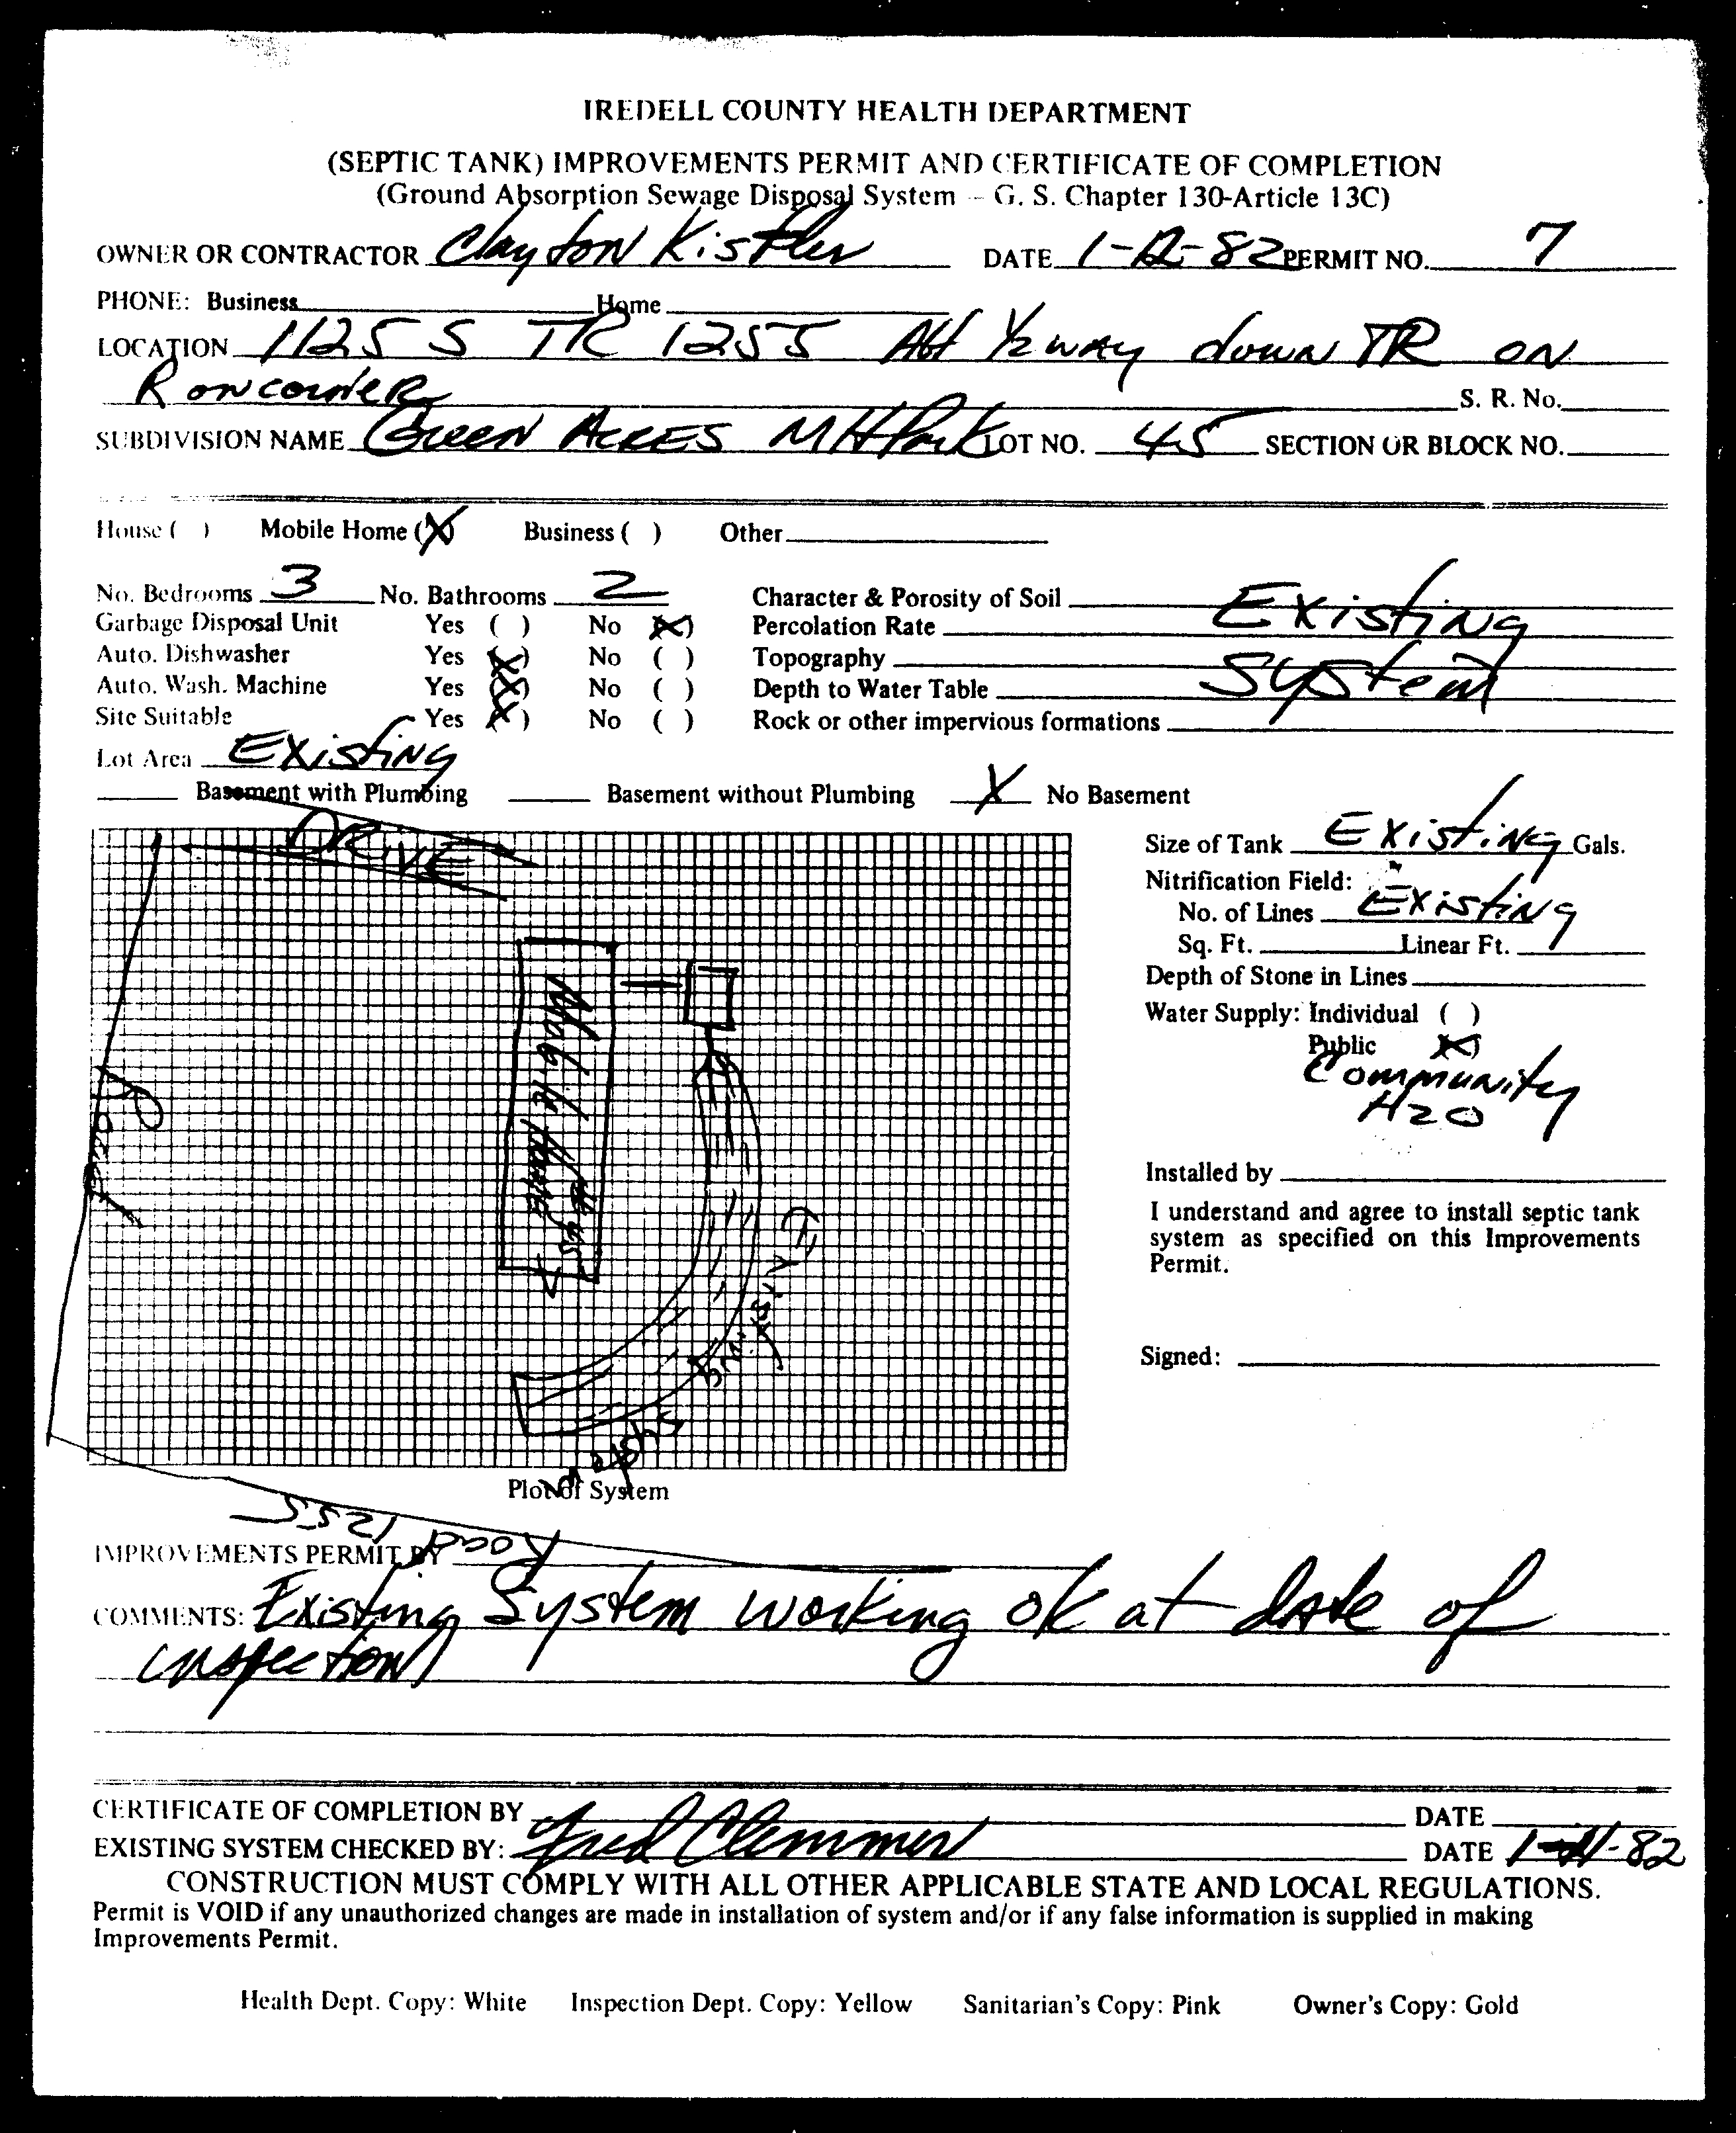 IREDELL COUNTY HEALTH DEPARTMENT
(SEPTIC TANK) IMPROVEMENTS PERMIT AND CERTIFICATE OF COMPLETION
(Ground Absorption Sewage Disposal System - G. S. Chapter 130-Article 13C)
OWNER OR CONTRACTOR Clayton Kistler DATE 1-12-82 PERMIT NO. 7
PHONE: Business Home
LOCATION 1125 S TR 1255 Abt 1/2 way down TR ON
R ON CORNER S. R. No.
SUBDIVISION NAME Green ACRES MH Park LOT NO. 45 SECTION OR BLOCK NO.
House ( ) Mobile Home (X) Business ( ) Other
No. Bedrooms 3 No. Bathrooms 2 Character & Porosity of Soil Existing
Garbage Disposal Unit Yes ( ) No (X) Percolation Rate
Auto. Dishwasher Yes (X) No ( ) Topography System
Auto. Wash. Machine Yes (X) No ( ) Depth to Water Table
Site Suitable Yes (X) No ( ) Rock or other impervious formations
Lot Area Existing
Basement with Plumbing Basement without Plumbing X No Basement
DRIVE
Size of Tank Existing Gals.
Nitrification Field:
No. of Lines Existing
Sq. Ft. Linear Ft.
Depth of Stone in Lines
Water Supply: Individual ( )
Public (X)
Community
H2O
Mobile Home
Road
Existing
System
Installed by
I understand and agree to install septic tank
system as specified on this Improvements
Permit.
Signed:
Plot of System
Road 1255
IMPROVEMENTS PERMIT BY
COMMENTS: Existing System working ok at date of
inspection
CERTIFICATE OF COMPLETION BY DATE
EXISTING SYSTEM CHECKED BY: Fred Clemmer DATE 1-11-82
CONSTRUCTION MUST COMPLY WITH ALL OTHER APPLICABLE STATE AND LOCAL REGULATIONS.
Permit is VOID if any unauthorized changes are made in installation of system and/or if any false information is supplied in making
Improvements Permit.
Health Dept. Copy: White Inspection Dept. Copy: Yellow Sanitarian's Copy: Pink Owner's Copy: Gold